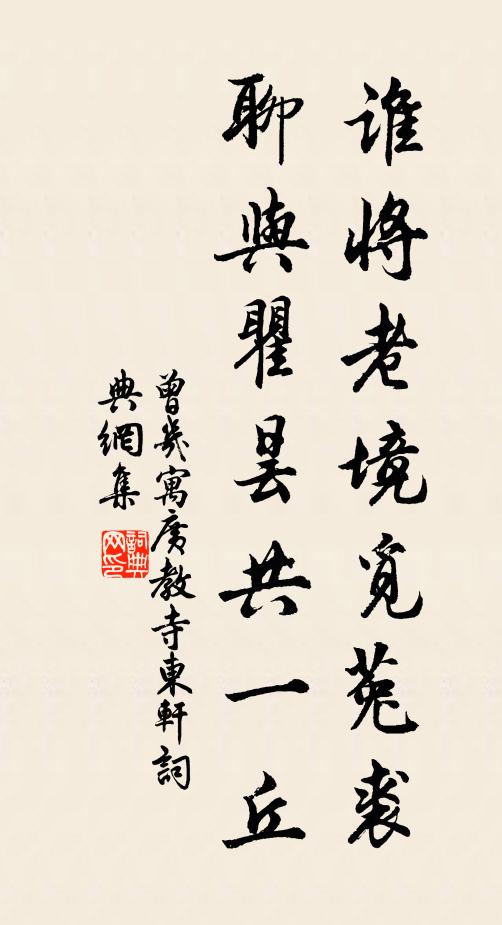 誰將老境覓菟裘
聊與瞿曇共一丘
曾幾寓廣教寺東軒詞
典網集
詞典网印